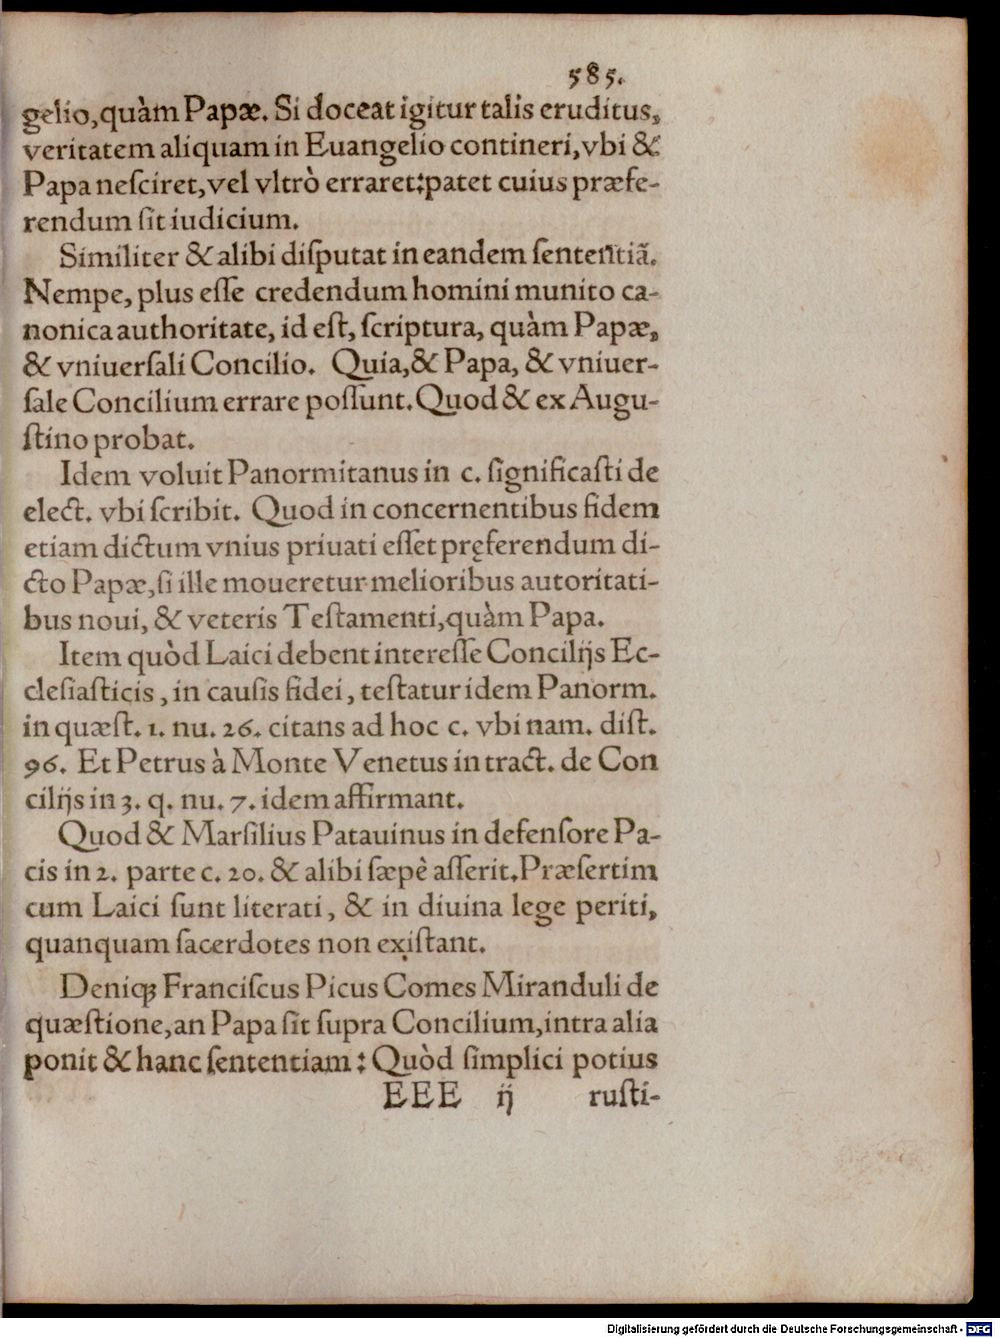 585.
gelio,quàm Papæ. Si doceat igitur talis eruditus,
veritatem aliquam in Euangelio contineri,vbi &
Papa neſciret,vel vltrò erraret:patet cuius præfe-
rendum ſit iudicium.
Similiter & alibi diſputat in eandem ſententiã.
Nempe, plus eſſe credendum homini munito ca-
nonica authoritate, id eſt, ſcriptura, quàm Papæ,
& vniuerſali Concilio. Quia,& Papa, & vniuer-
ſale Concilium errare poſſunt.Quod & ex Augu-
ſtino probat.
Idem voluit Panormitanus in c. ſignificaſti de
elect. vbi ſcribit. Quod in concernentibus fidem
etiam dictum vnius priuati eſſet pręferendum di-
cto Papæ,ſi ille moueretur melioribus autoritati-
bus noui, & veteris Teſtamenti,quàm Papa.
Item quòd Laici debent intereſſe Concilijs Ec-
cleſiaſticis, in cauſis fidei, teſtatur idem Panorm.
in quæſt. 1. nu. 26. citans ad hoc c. vbi nam. diſt.
96. Et Petrus à Monte Venetus in tract. de Con
cilijs in 3. q. nu. 7. idem affirmant.
Quod & Marſilius Patauinus in defenſore Pa-
cis in 2. parte c. 20. & alibi ſæpè aſſerit.Præſertim
cum Laici ſunt literati, & in diuina lege periti,
quanquam ſacerdotes non exiſtant.
Deniqꝫ Franciſcus Picus Comes Miranduli de
quæſtione,an Papa ſit ſupra Concilium,intra alia
ponit & hanc ſententiam: Quòd ſimplici potius
EEE ij ruſti-
Digitalisierung gefördert durch die Deutsche Forschungsgemeinschaft - DFG